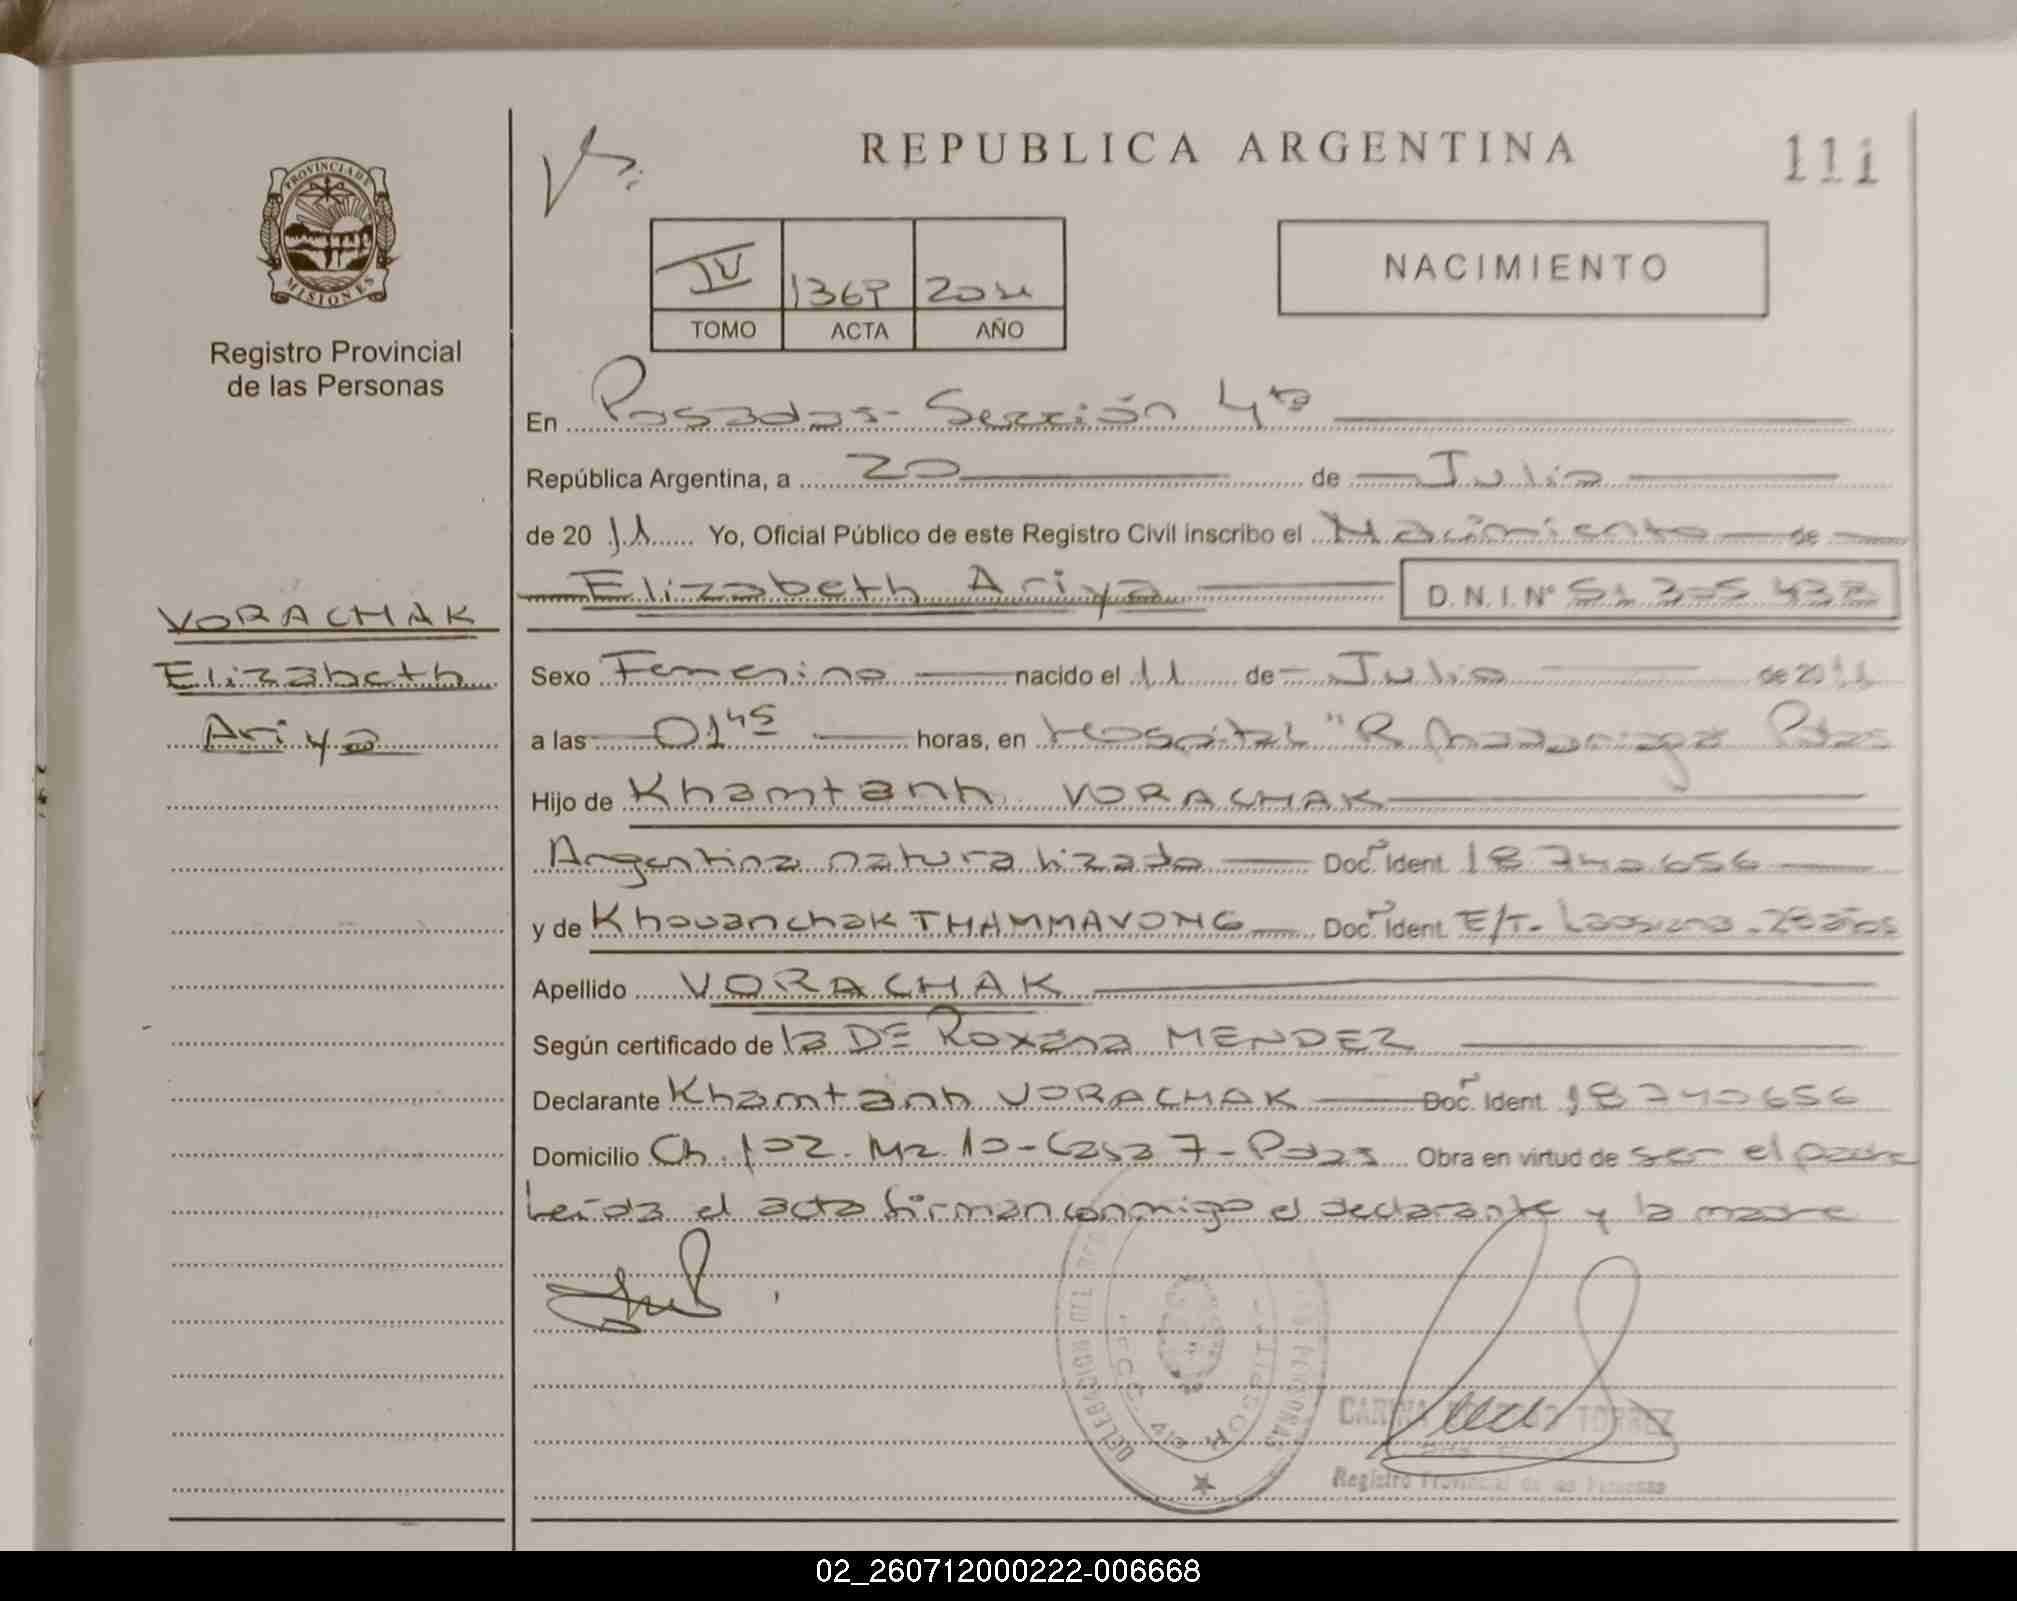 REPUBLICA ARGENTINA
111
PROVINCIA DE
MISIONES
Registro Provincial
de las Personas
IV
TOMO
ACTA
2011
AÑO
NACIMIENTO
En Posadas - Sección 4ta
República Argentina, a 20 de Julio
de 20 11 Yo, Oficial Público de este Registro Civil inscribo el Nacimiento de
Elizabeth Ariya D.N.I. Nº
VORACHAK
Elizabeth
Ariya
Sexo Femenino nacido el 11 de Julio de 2011
a las 01 45 horas, en Hospital "R. Madariaga Pdas
Hijo de Khamtanh VORACHAK
Argentino naturalizado Doc. Ident. 18740656
y de Khouanchak THAMMAVONG Doc. Ident. E/T. Laosiana. 28 años
Apellido VORACHAK
Según certificado de la Dra Roxana MENDEZ
Declarante Khamtanh VORACHAK Doc. Ident. 18740656
Domicilio Ch. 102. Mz. 10 - Casa 7 - Pdas Obra en virtud de ser el padre
Leída el acta firman conmigo el declarante y la madre
DELEGACION DEL
PERSONAS
SECC. 4ta
CARINA TORREZ
Registro Provincial de las Personas
02_260712000222-006668